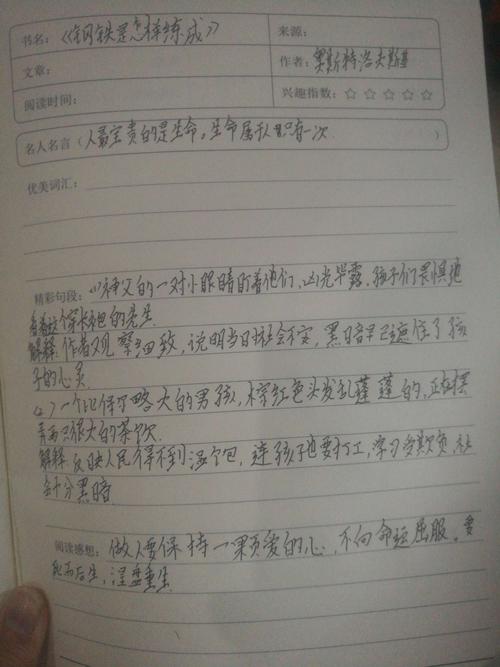 书名：《钢铁是怎样练成》
来源：
文章：
作者：奥斯特洛夫斯基
阅读时间：
兴趣指数：☆ ☆ ☆ ☆ ☆
名人名言（人最宝贵的是生命。生命属于人只有一次 ）
优美词汇：
精彩句段：(1)神父的一对小眼睛盯着他们，凶光毕露。孩子们畏惧地
看着这个穿长袍的先生
解释：作者观察细致，说明当日社会不安，黑暗早已遮住了孩
子的心灵
(2)一个比保尔略大的男孩，棕红色头发乱蓬蓬的，正在摆
弄两只很大的茶炊
解释：反映人民得不到温饱，连孩子也要打工，学习多欺负社
会十分黑暗
阅读感想：做人要保持一颗爱的心，不向命运屈服。要
死而后生，涅盘重生